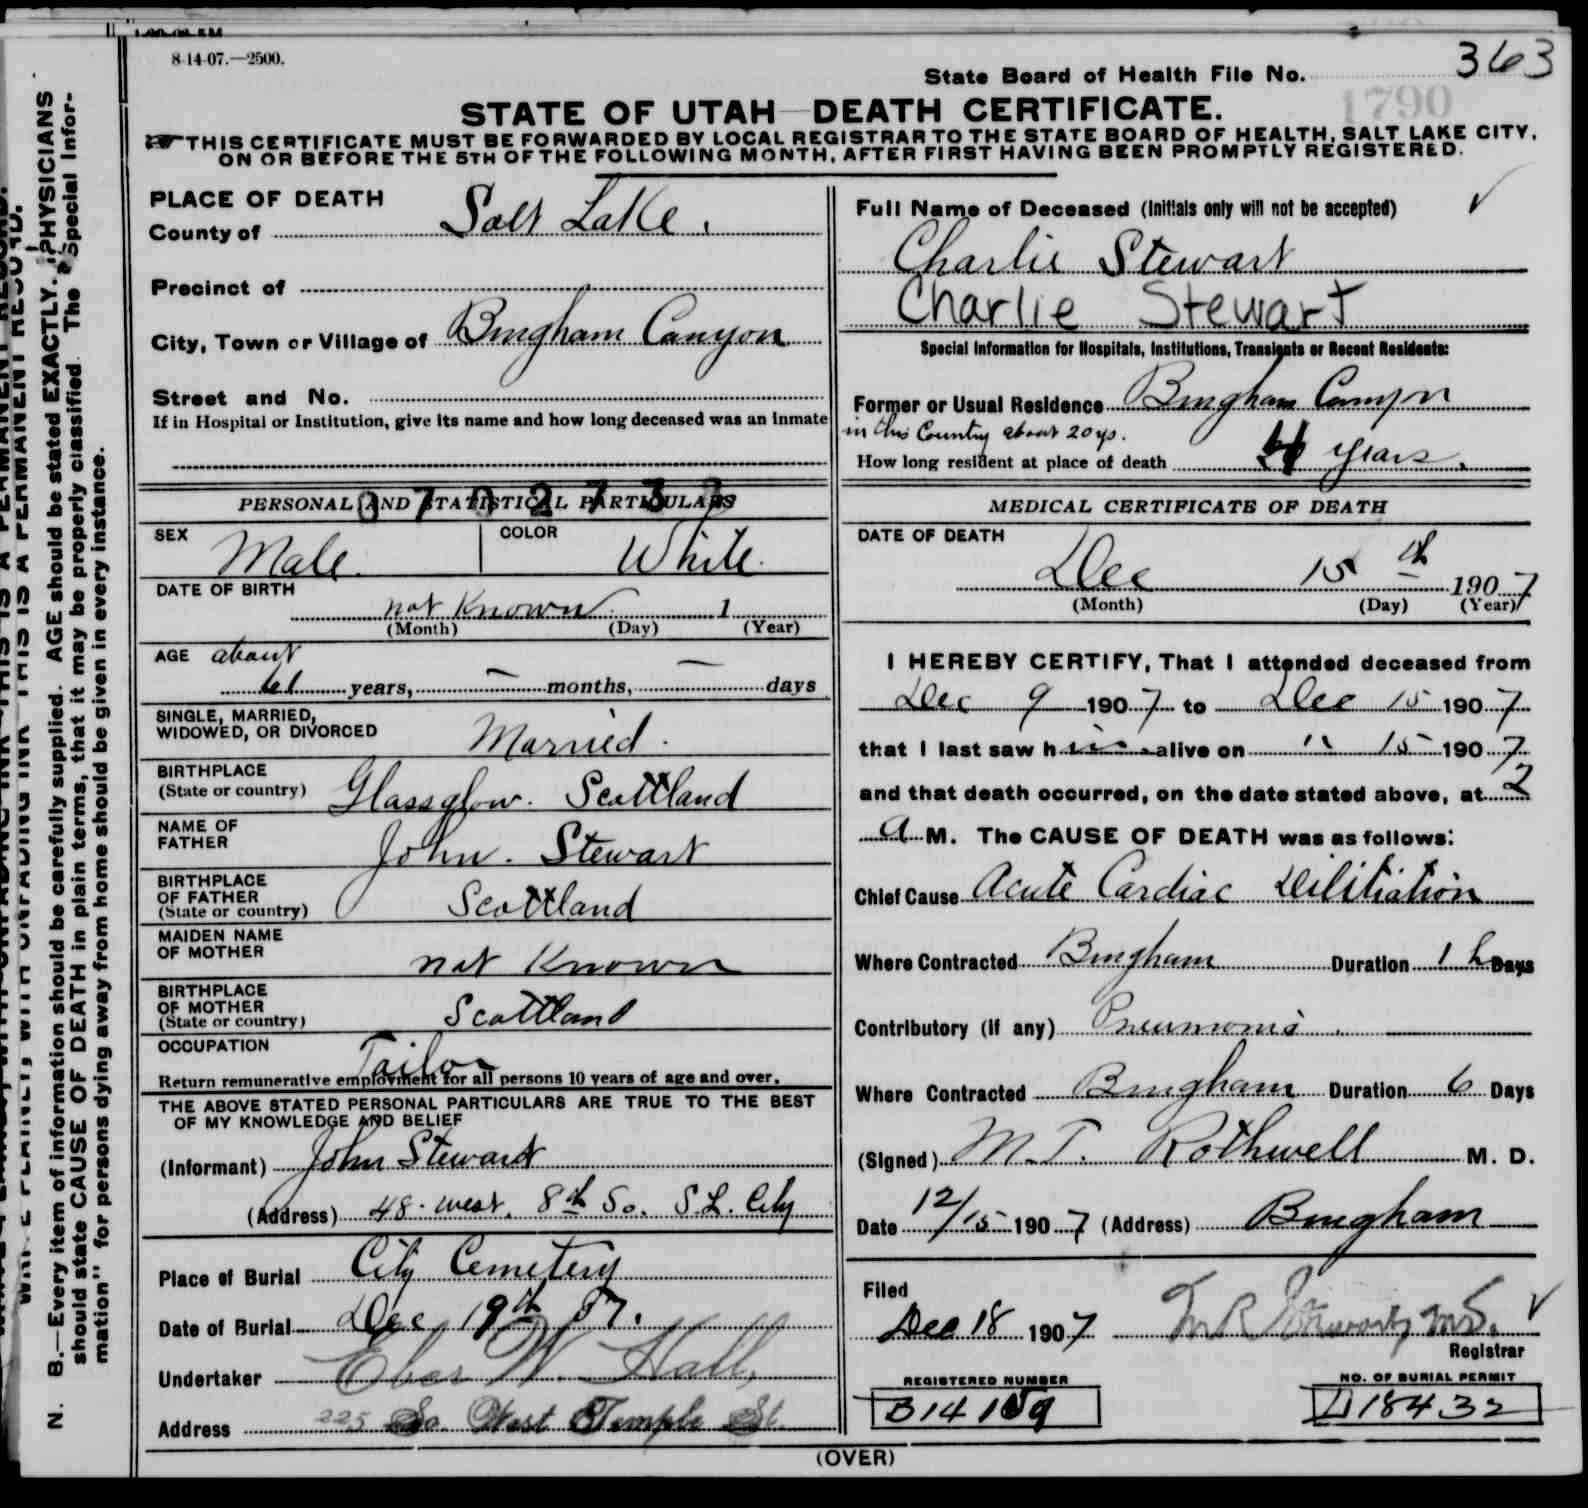 8-14-07.—2500.
State Board of Health File No. 363
1790
STATE OF UTAH—DEATH CERTIFICATE.
THIS CERTIFICATE MUST BE FORWARDED BY LOCAL REGISTRAR TO THE STATE BOARD OF HEALTH, SALT LAKE CITY,
ON OR BEFORE THE 5TH OF THE FOLLOWING MONTH, AFTER FIRST HAVING BEEN PROMPTLY REGISTERED.
PLACE OF DEATH
County of Salt Lake.
Precinct of
City, Town or Village of Bingham Canyon
Street and No.
If in Hospital or Institution, give its name and how long deceased was an inmate
PERSONAL AND STATISTICAL PARTICULARS
SEX Male. COLOR White.
DATE OF BIRTH
not Known 1
(Month) (Day) (Year)
AGE about
61 years, — months, — days
SINGLE, MARRIED,
WIDOWED, OR DIVORCED Married.
BIRTHPLACE
(State or country) Glassglow. Scottland
NAME OF
FATHER John. Stewart
BIRTHPLACE
OF FATHER
(State or country) Scottland
MAIDEN NAME
OF MOTHER not Known
BIRTHPLACE
OF MOTHER
(State or country) Scottland
OCCUPATION Tailor
Return remunerative employment for all persons 10 years of age and over.
THE ABOVE STATED PERSONAL PARTICULARS ARE TRUE TO THE BEST
OF MY KNOWLEDGE AND BELIEF
(Informant) John Stewart
(Address) 48. west. 8th So. S.L. City
Place of Burial City Cemetery
Date of Burial Dec 19th 07.
Undertaker Eber W. Hall,
Address 225 So. West Temple St.
Full Name of Deceased (Initials only will not be accepted)
Charlie Stewart
Charlie Stewart
Special Information for Hospitals, Institutions, Transients or Recent Residents:
Former or Usual Residence Bingham Canyon
in this Country about 20 ys.
How long resident at place of death 4 years.
MEDICAL CERTIFICATE OF DEATH
DATE OF DEATH
Dec 15th 1907
(Month) (Day) (Year)
I HEREBY CERTIFY, That I attended deceased from
Dec 9 1907 to Dec 15 1907
that I last saw him alive on " 15 1907
and that death occurred, on the date stated above, at 2
a M. The CAUSE OF DEATH was as follows:
Chief Cause Acute Cardiac Dilitiation
Where Contracted Bingham Duration 1 h Days
Contributory (if any) Pneumonia.
Where Contracted Bingham Duration 6 Days
(Signed) M.T. Rothwell M. D.
Date 12/15 1907 (Address) Bingham
Filed
Dec 18 1907
Registrar
REGISTERED NUMBER
NO. OF BURIAL PERMIT
D18432
(OVER)
N. B.—Every item of information should be carefully supplied. AGE should be stated EXACTLY. PHYSICIANS
should state CAUSE OF DEATH in plain terms, that it may be properly classified. The "Special Infor-
mation" for persons dying away from home should be given in every instance.